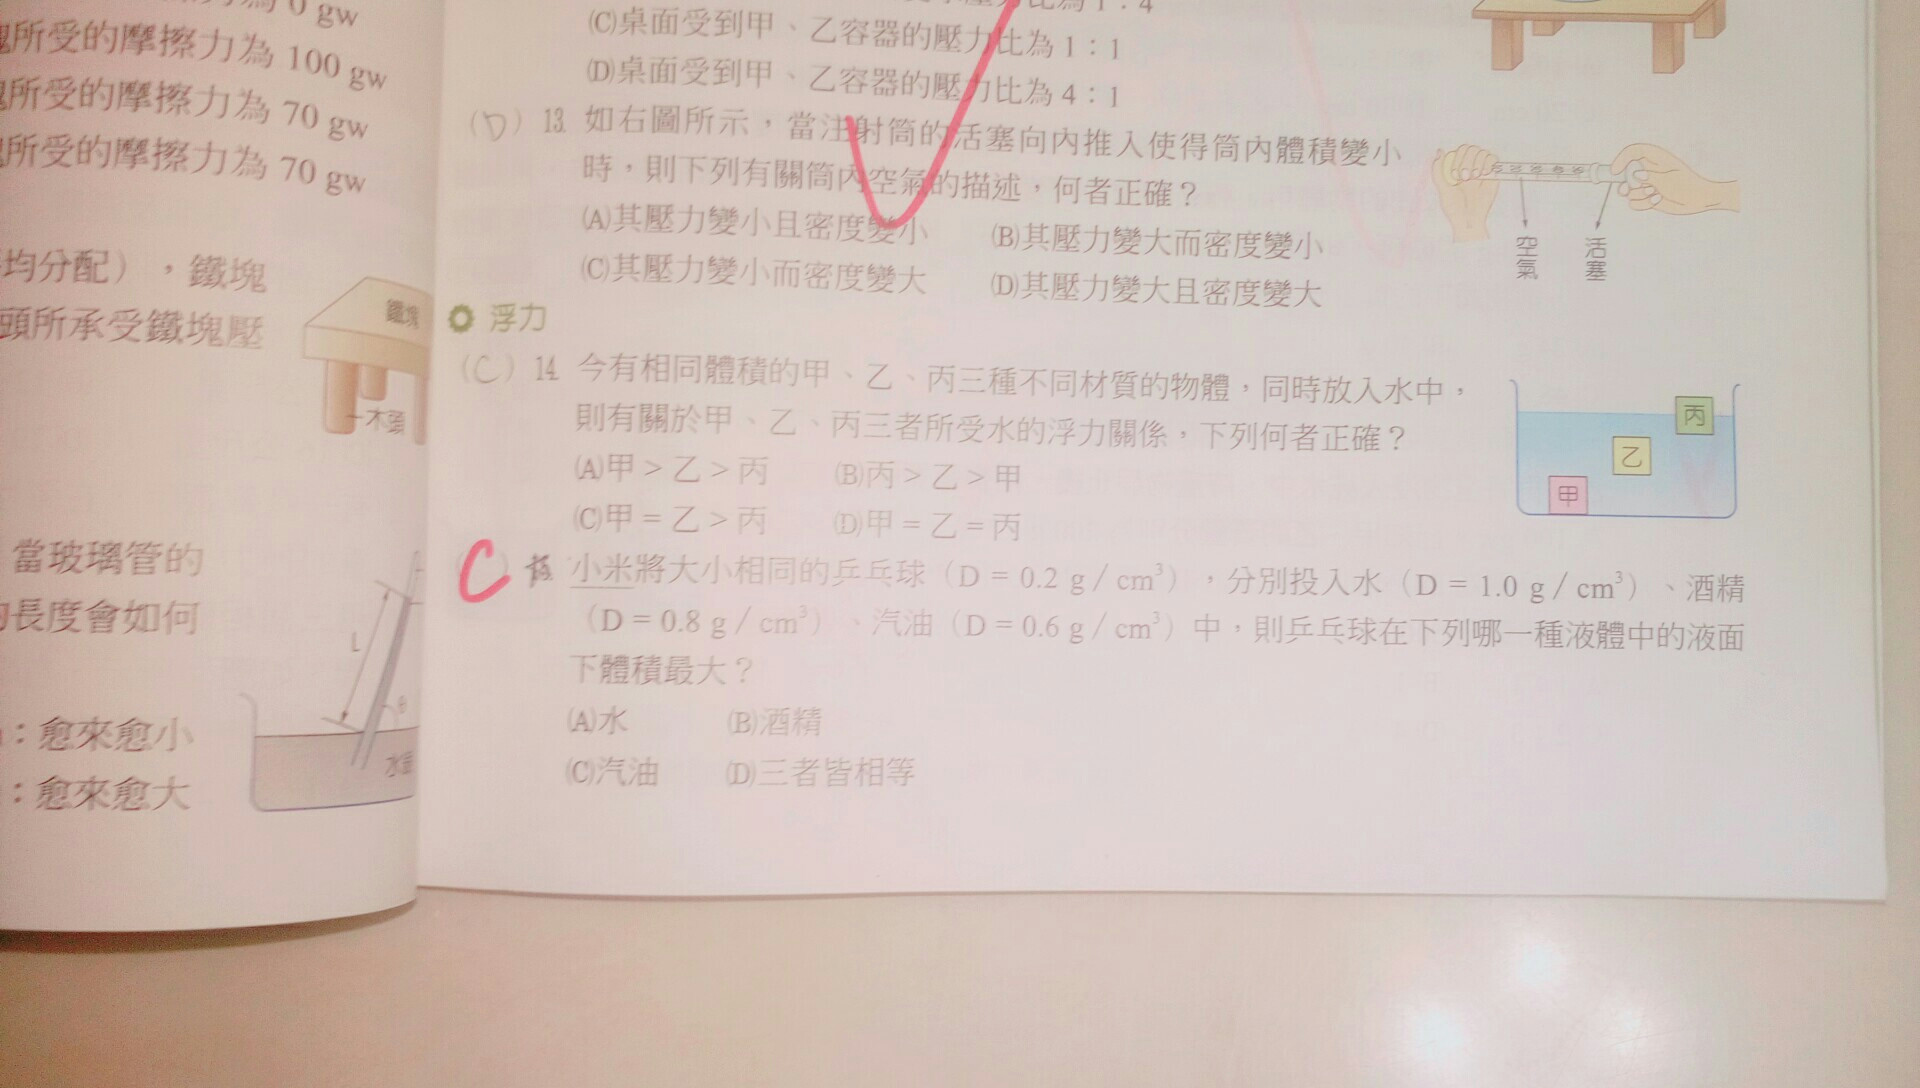 0 gw
所受的摩擦力為 100 gw
所受的摩擦力為 70 gw
所受的摩擦力為 70 gw
均分配），鐵塊
頭所承受鐵塊壓
鐵塊
木頭
當玻璃管的
長度會如何
L
θ
：愈來愈小
：愈來愈大
(C)桌面受到甲、乙容器的壓力比為 1：1
(D)桌面受到甲、乙容器的壓力比為 4：1
(D) 13. 如右圖所示，當注射筒的活塞向內推入使得筒內體積變小
時，則下列有關筒內空氣的描述，何者正確？
(A)其壓力變小且密度變小 (B)其壓力變大而密度變小
(C)其壓力變小而密度變大 (D)其壓力變大且密度變大
空氣 活塞
浮力
(C) 14. 今有相同體積的甲、乙、丙三種不同材質的物體，同時放入水中，
則有關於甲、乙、丙三者所受水的浮力關係，下列何者正確？
(A)甲＞乙＞丙 (B)丙＞乙＞甲
(C)甲＝乙＞丙 (D)甲＝乙＝丙
丙
乙
甲
C 小米將大小相同的乒乓球（D = 0.2 g／cm³），分別投入水（D = 1.0 g／cm³）、酒精
（D = 0.8 g／cm³）、汽油（D = 0.6 g／cm³）中，則乒乓球在下列哪一種液體中的液面
下體積最大？
(A)水 (B)酒精
(C)汽油 (D)三者皆相等